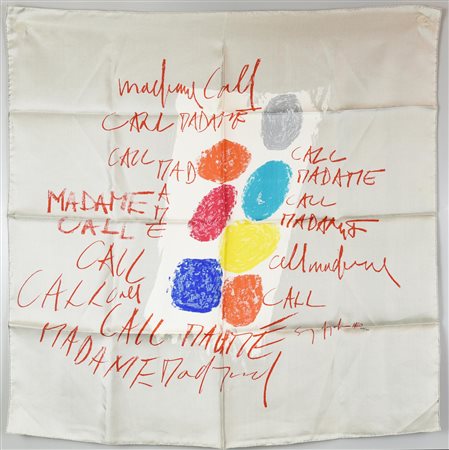 madame Call
CALL MADAME
CALL MAD
A
M
E
CALL
MADAME
CALL
MADAME
MADAME
CALLE
CALL
call madame
CALL call
CALL
CALL MADAME
MADAME Madame